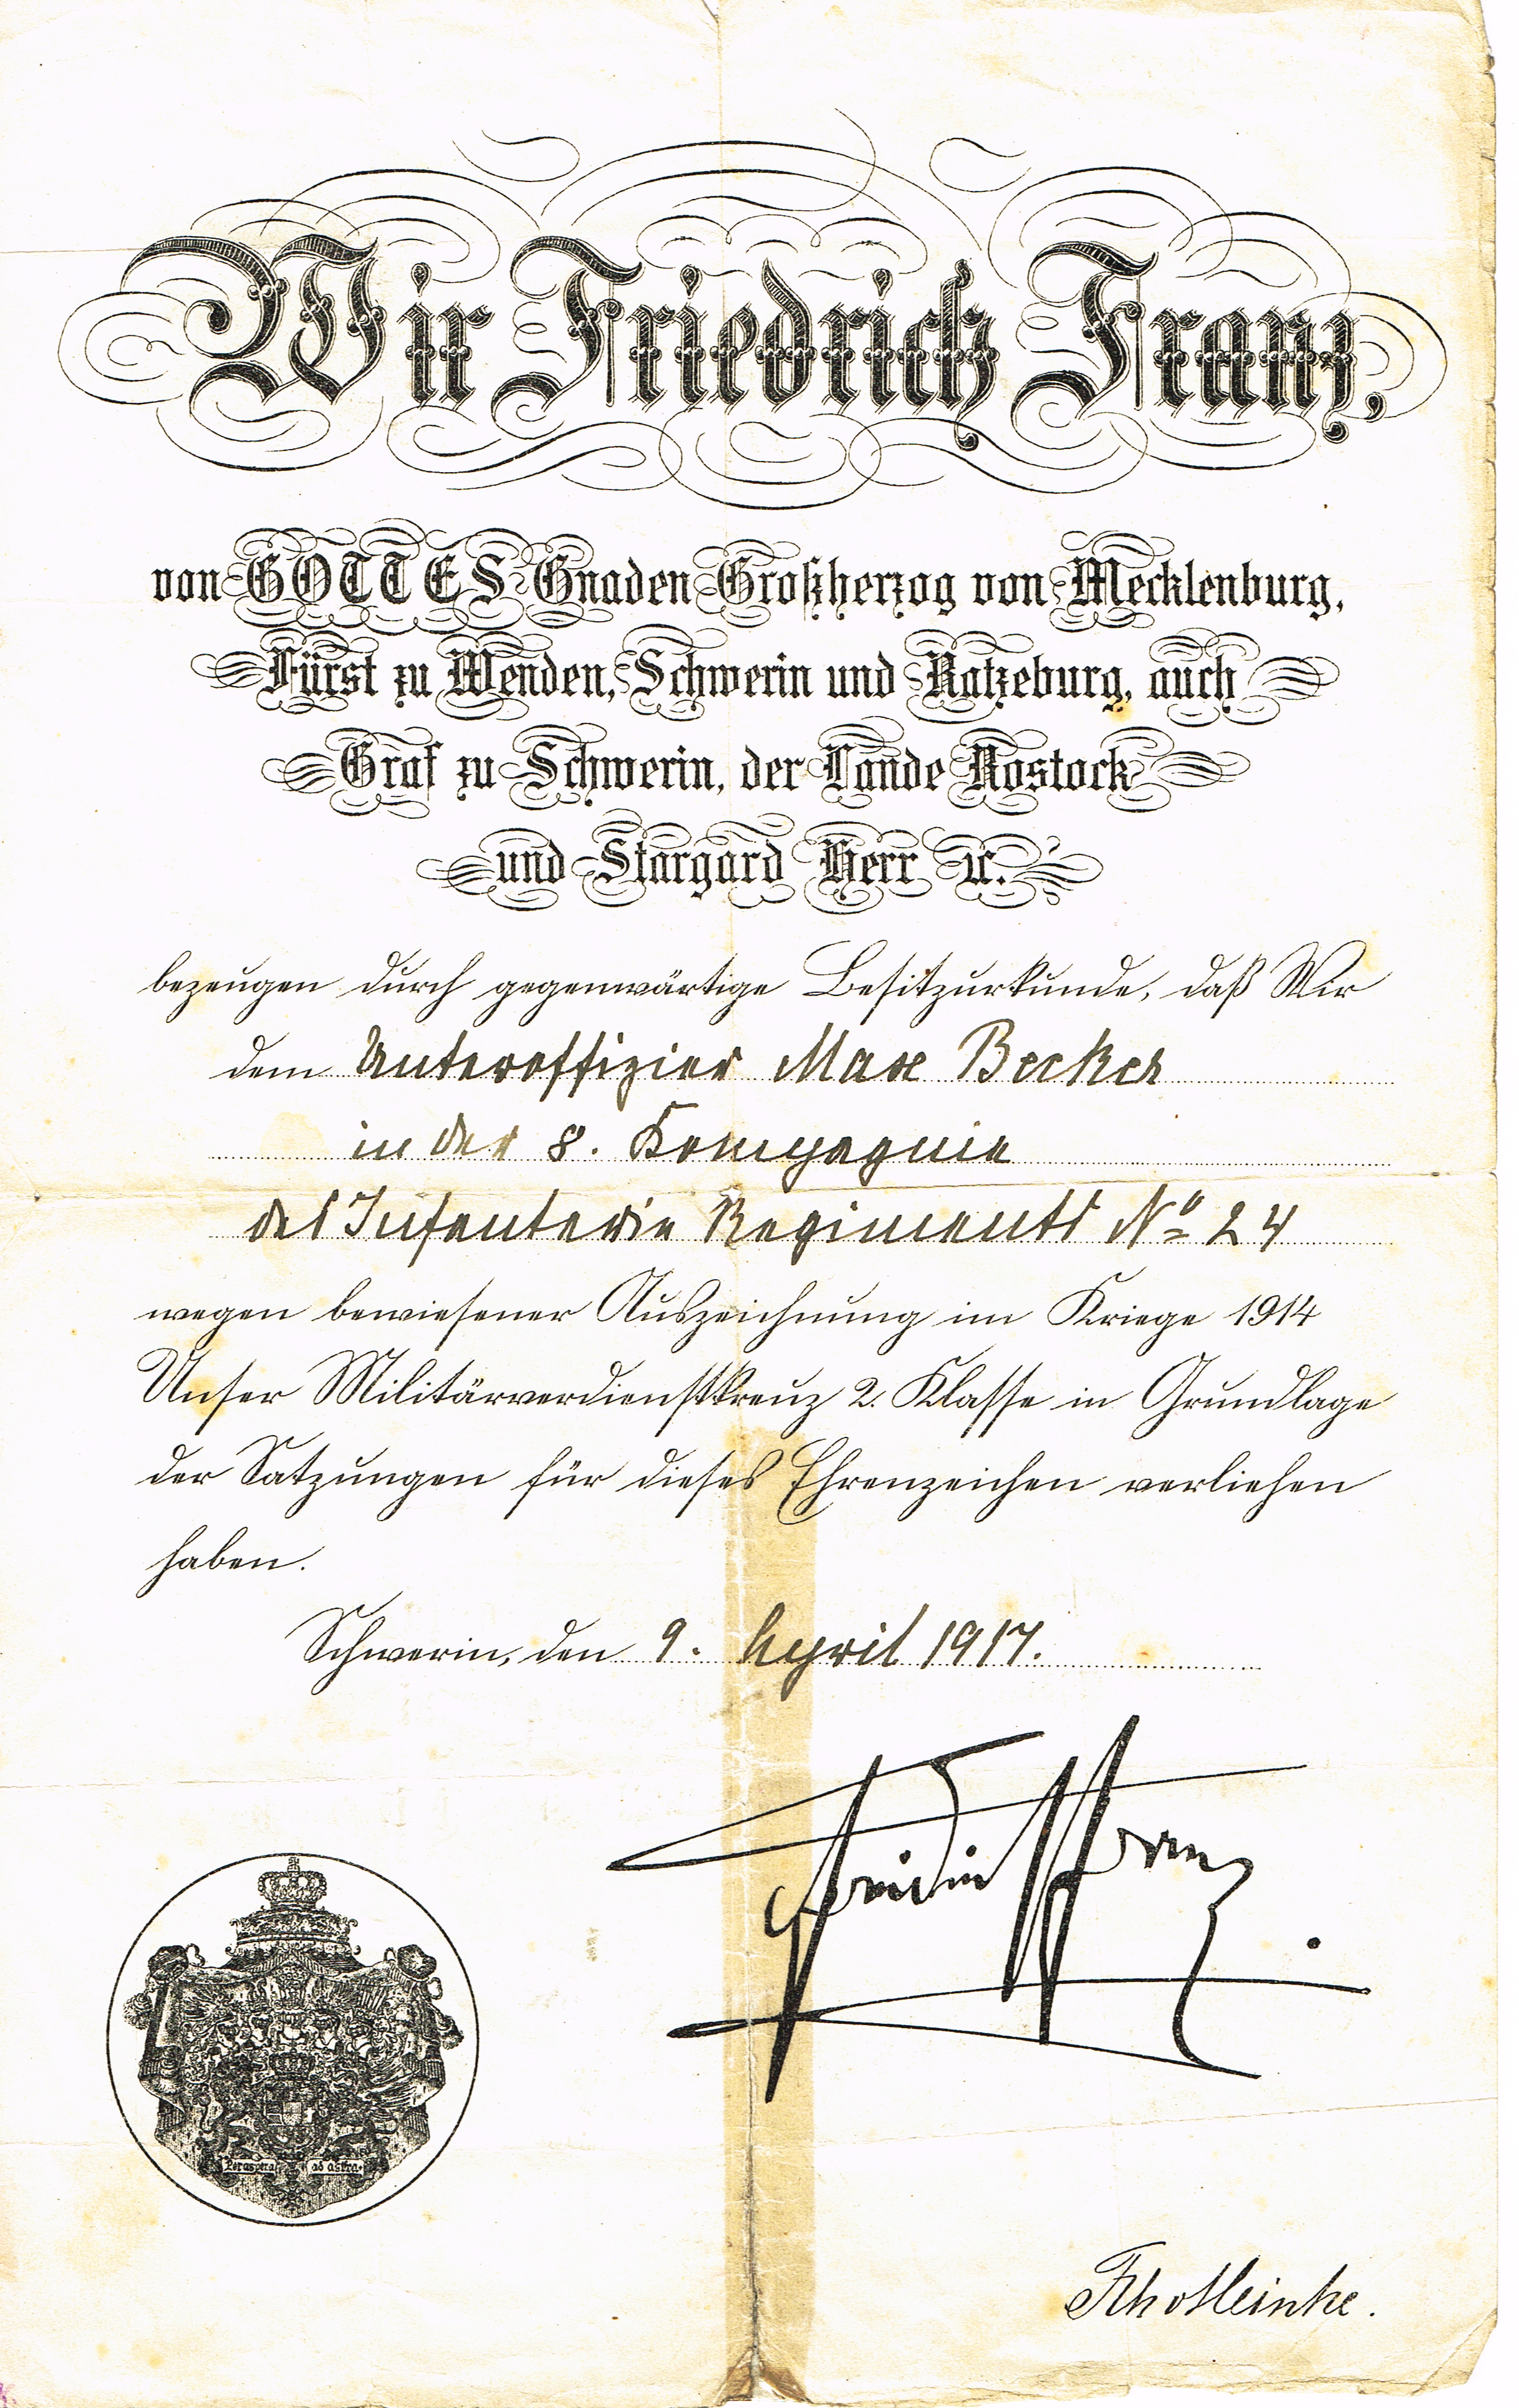 Wir Friedrich Franz,
von GOTTES Gnaden Großherzog von Mecklenburg,
Fürst zu Wenden, Schwerin und Ratzeburg, auch
Graf zu Schwerin, der Lande Rostock
und Stargard Herr ꝛc.
bezeugen durch gegenwärtige Besitzurkunde, daß Wir
dem Unteroffizier Max Becker
in der 8. Kompagnie
des Infanterie Regiments No 24
wegen bewiesener Auszeichnung im Kriege 1914
Unser Militärverdienstkreuz 2. Klasse in Grundlage
der Satzungen für dieses Ehrenzeichen verliehen
haben.
Schwerin, den 9. April 1917.
Friedrich Franz
Per aspera ad astra